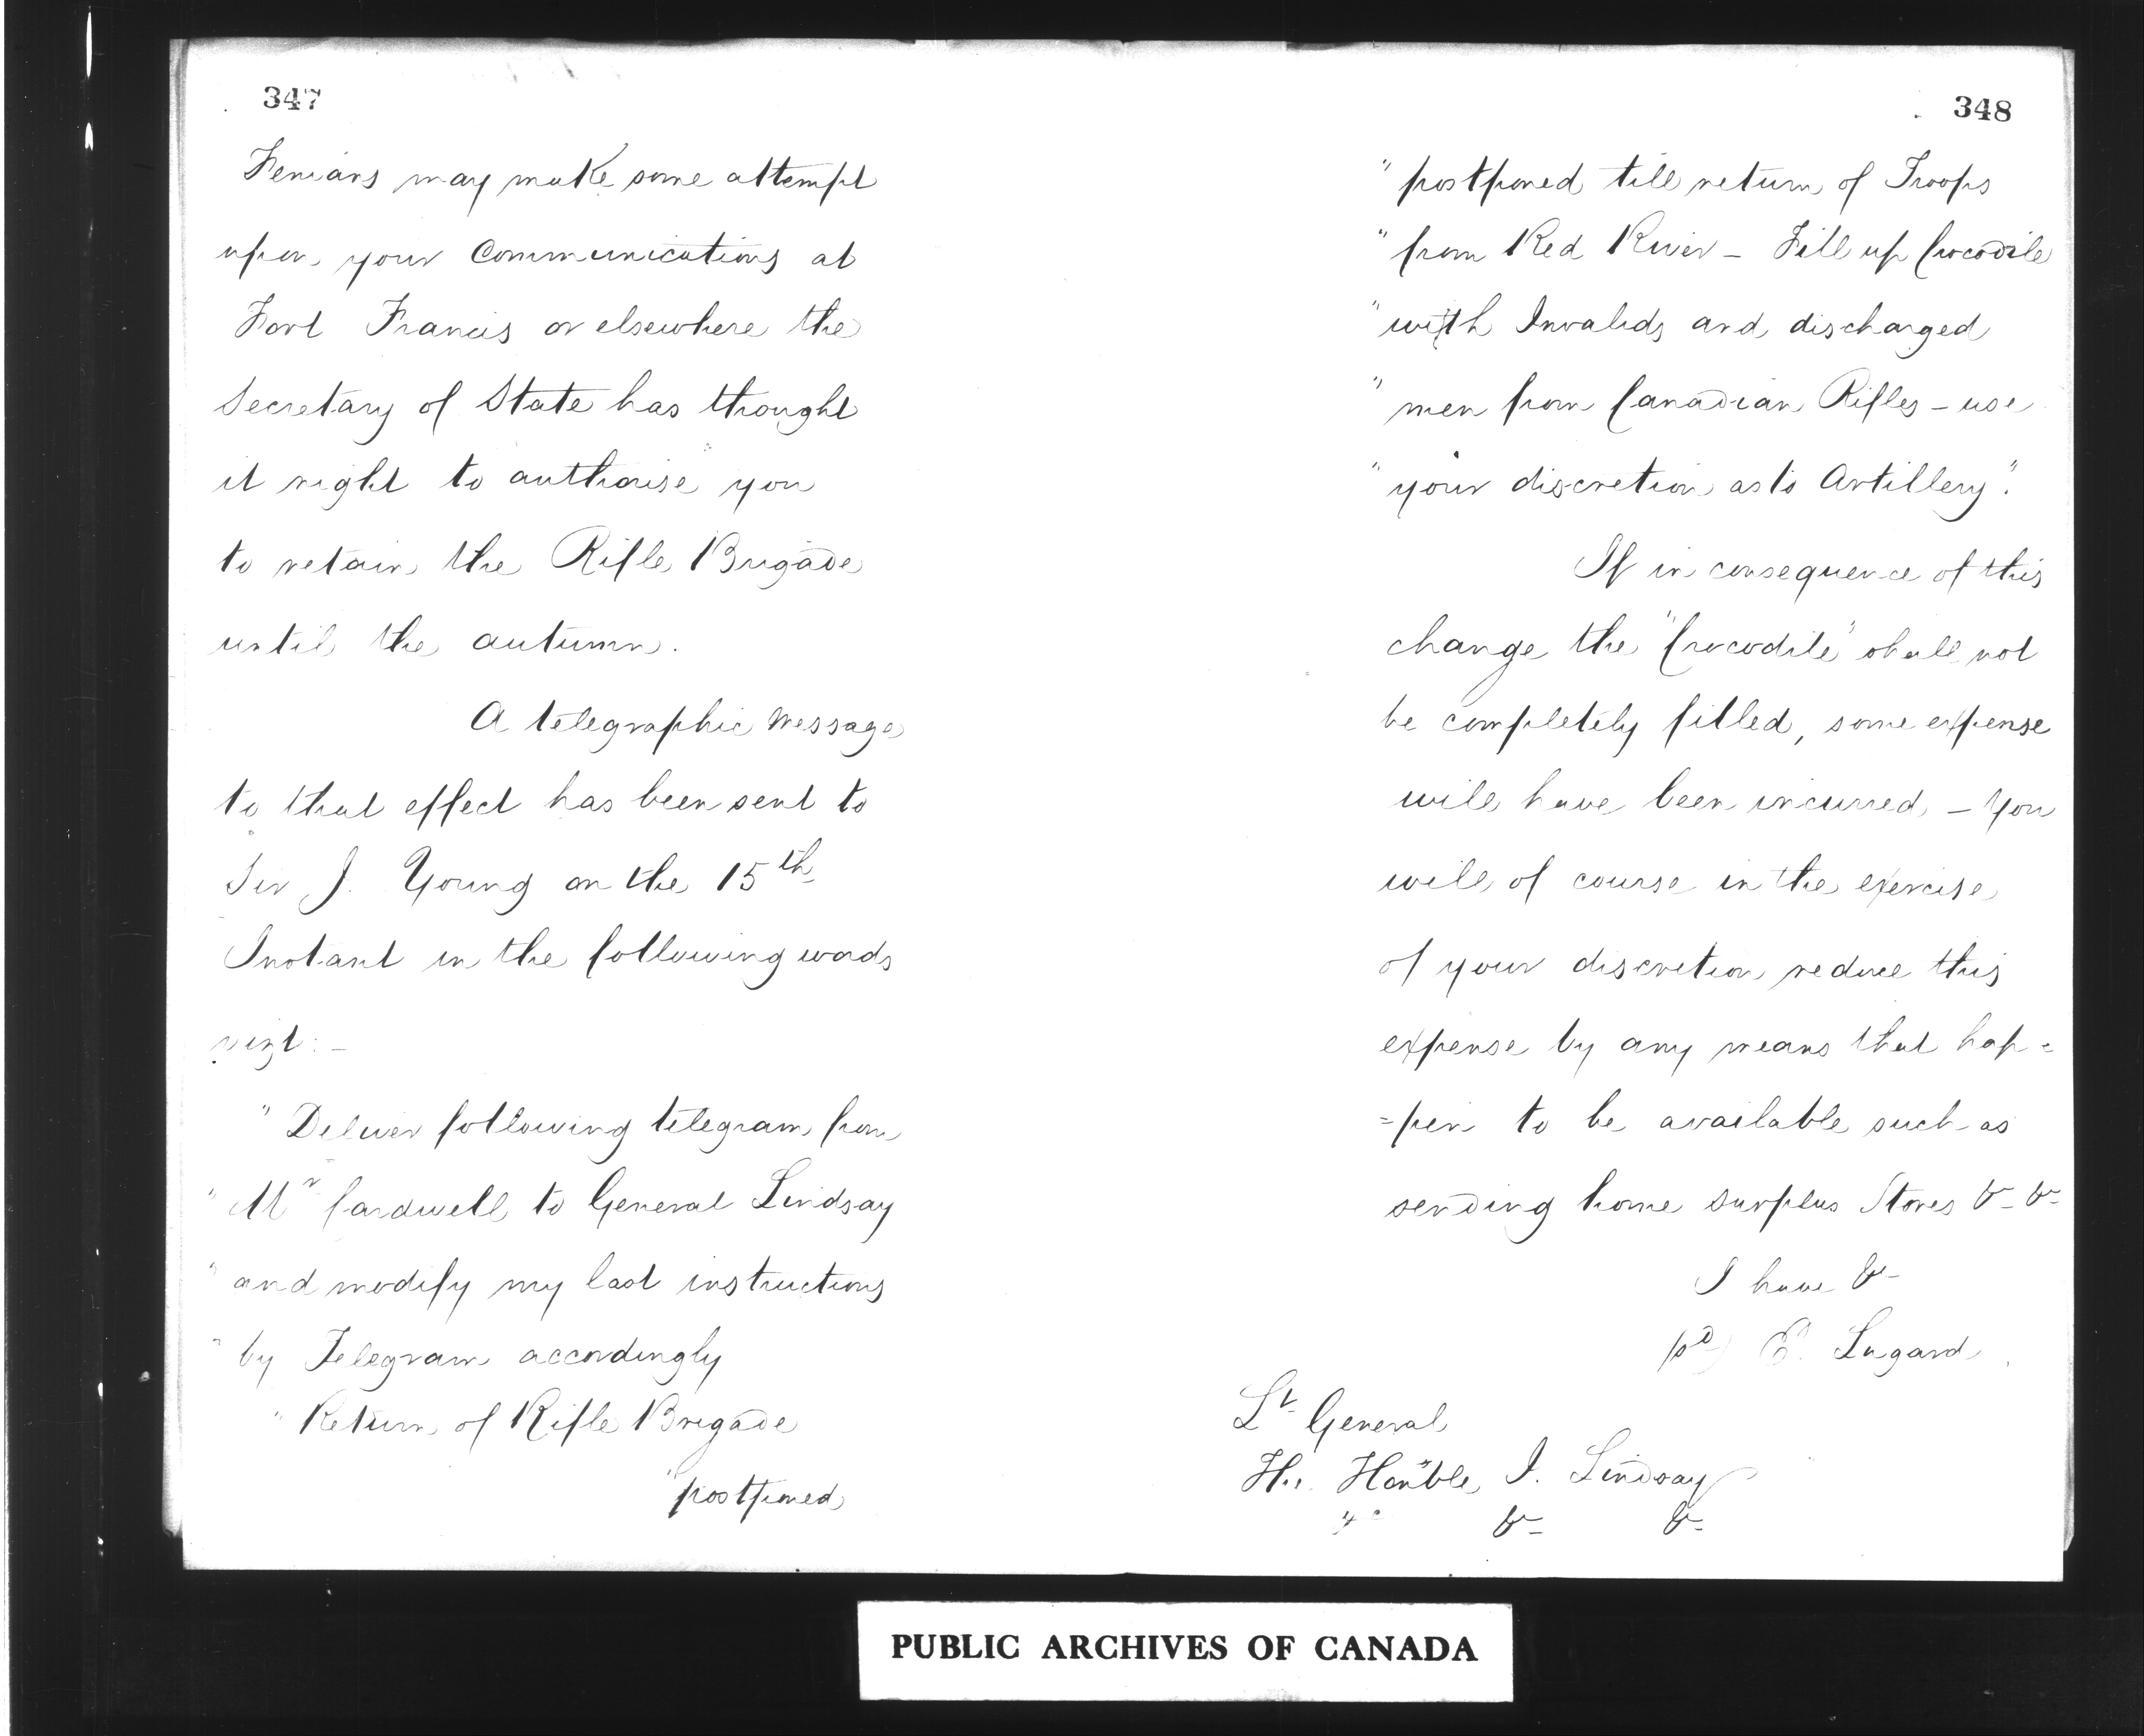 347
Fenians may make some attempt
upon your Communications at
Fort Francis or elsewhere the
Secretary of State has thought
it right to authorise you
to retain the Rifle Brigade
until the autumn.
A telegraphic Message
to that effect has been sent to
Sir J. Young on the 15th
Instant in the following words
vizt: –
" Deliver following telegram from
" Mr Cardwell to General Lindsay
" and modify my last instructions
" by Telegram accordingly
" Return of Rifle Brigade
" postponed
348
" postponed till return of Troops
" from Red River – Fill up Crocodile
" with Invalids and discharged
" men from Canadian Rifles – use
" your discretion as to Artillery".
If in consequence of this
change the "Crocodile" shall not
be completely filled, some expense
will have been incurred – You
will of course in the exercise
of your discretion reduce this
expense by any means that hap=
=pen to be available such as
sending home surplus Stores &c &c
I have &c
(sd) E. Lugard
Lt General
Honble J. Lindsay
&c &c &c
PUBLIC ARCHIVES OF CANADA